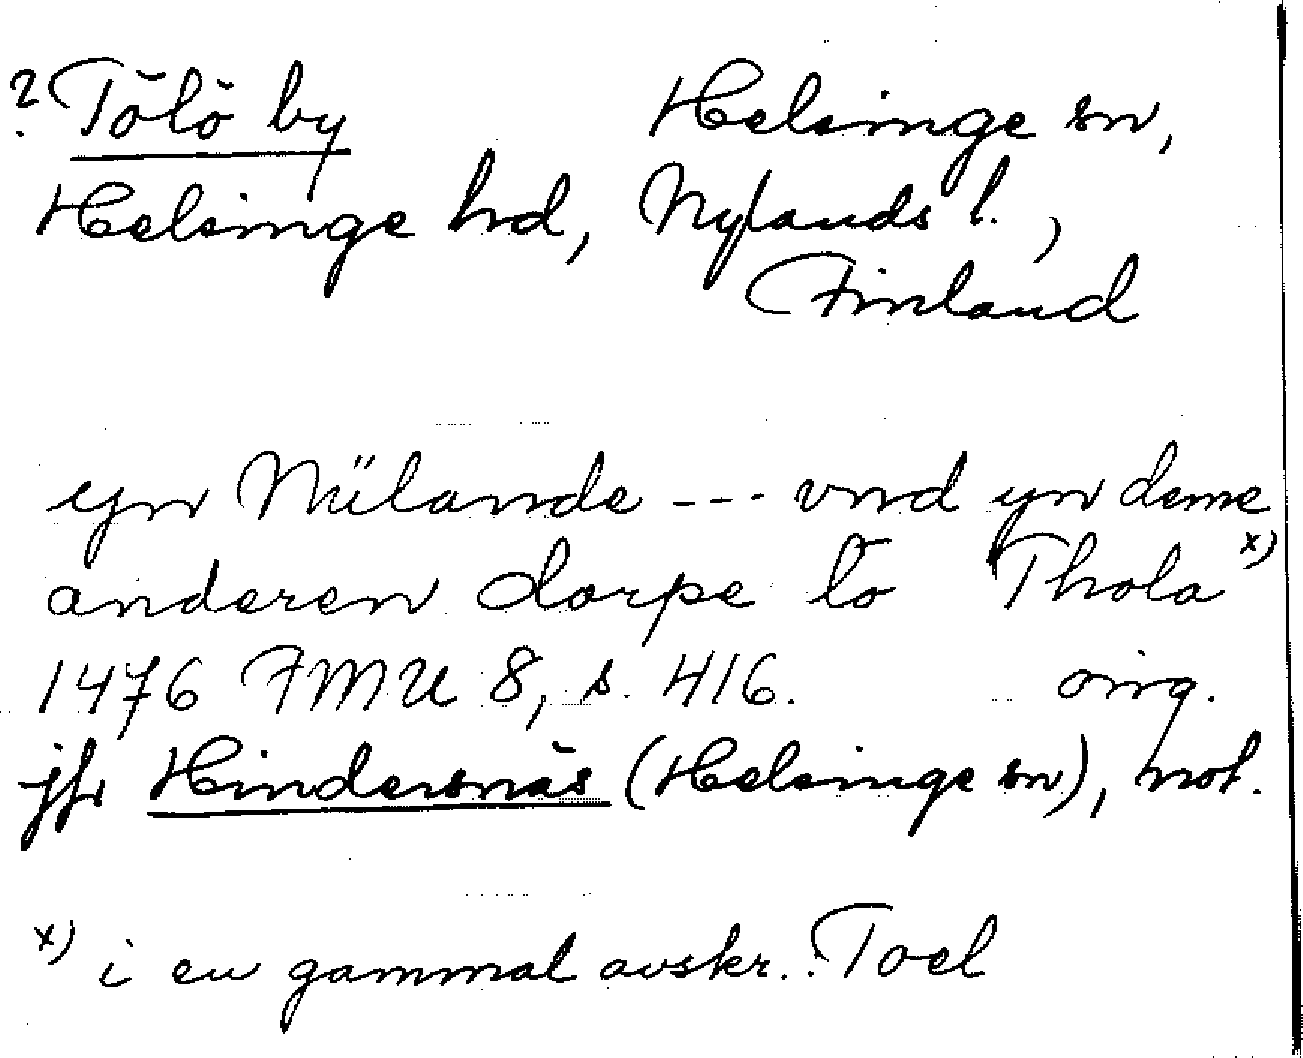 ? Tölö by Helsinge sn,
Helsinge hd, Nylands l.,
Finland
yn Nülande --- vnd yn deme
anderen dorpe to Thola x)
1476 FMU 8, s. 416. orig.
jfr Hindersnäs (Helsinge sn), not.
x) i en gammal avskr.: Toel